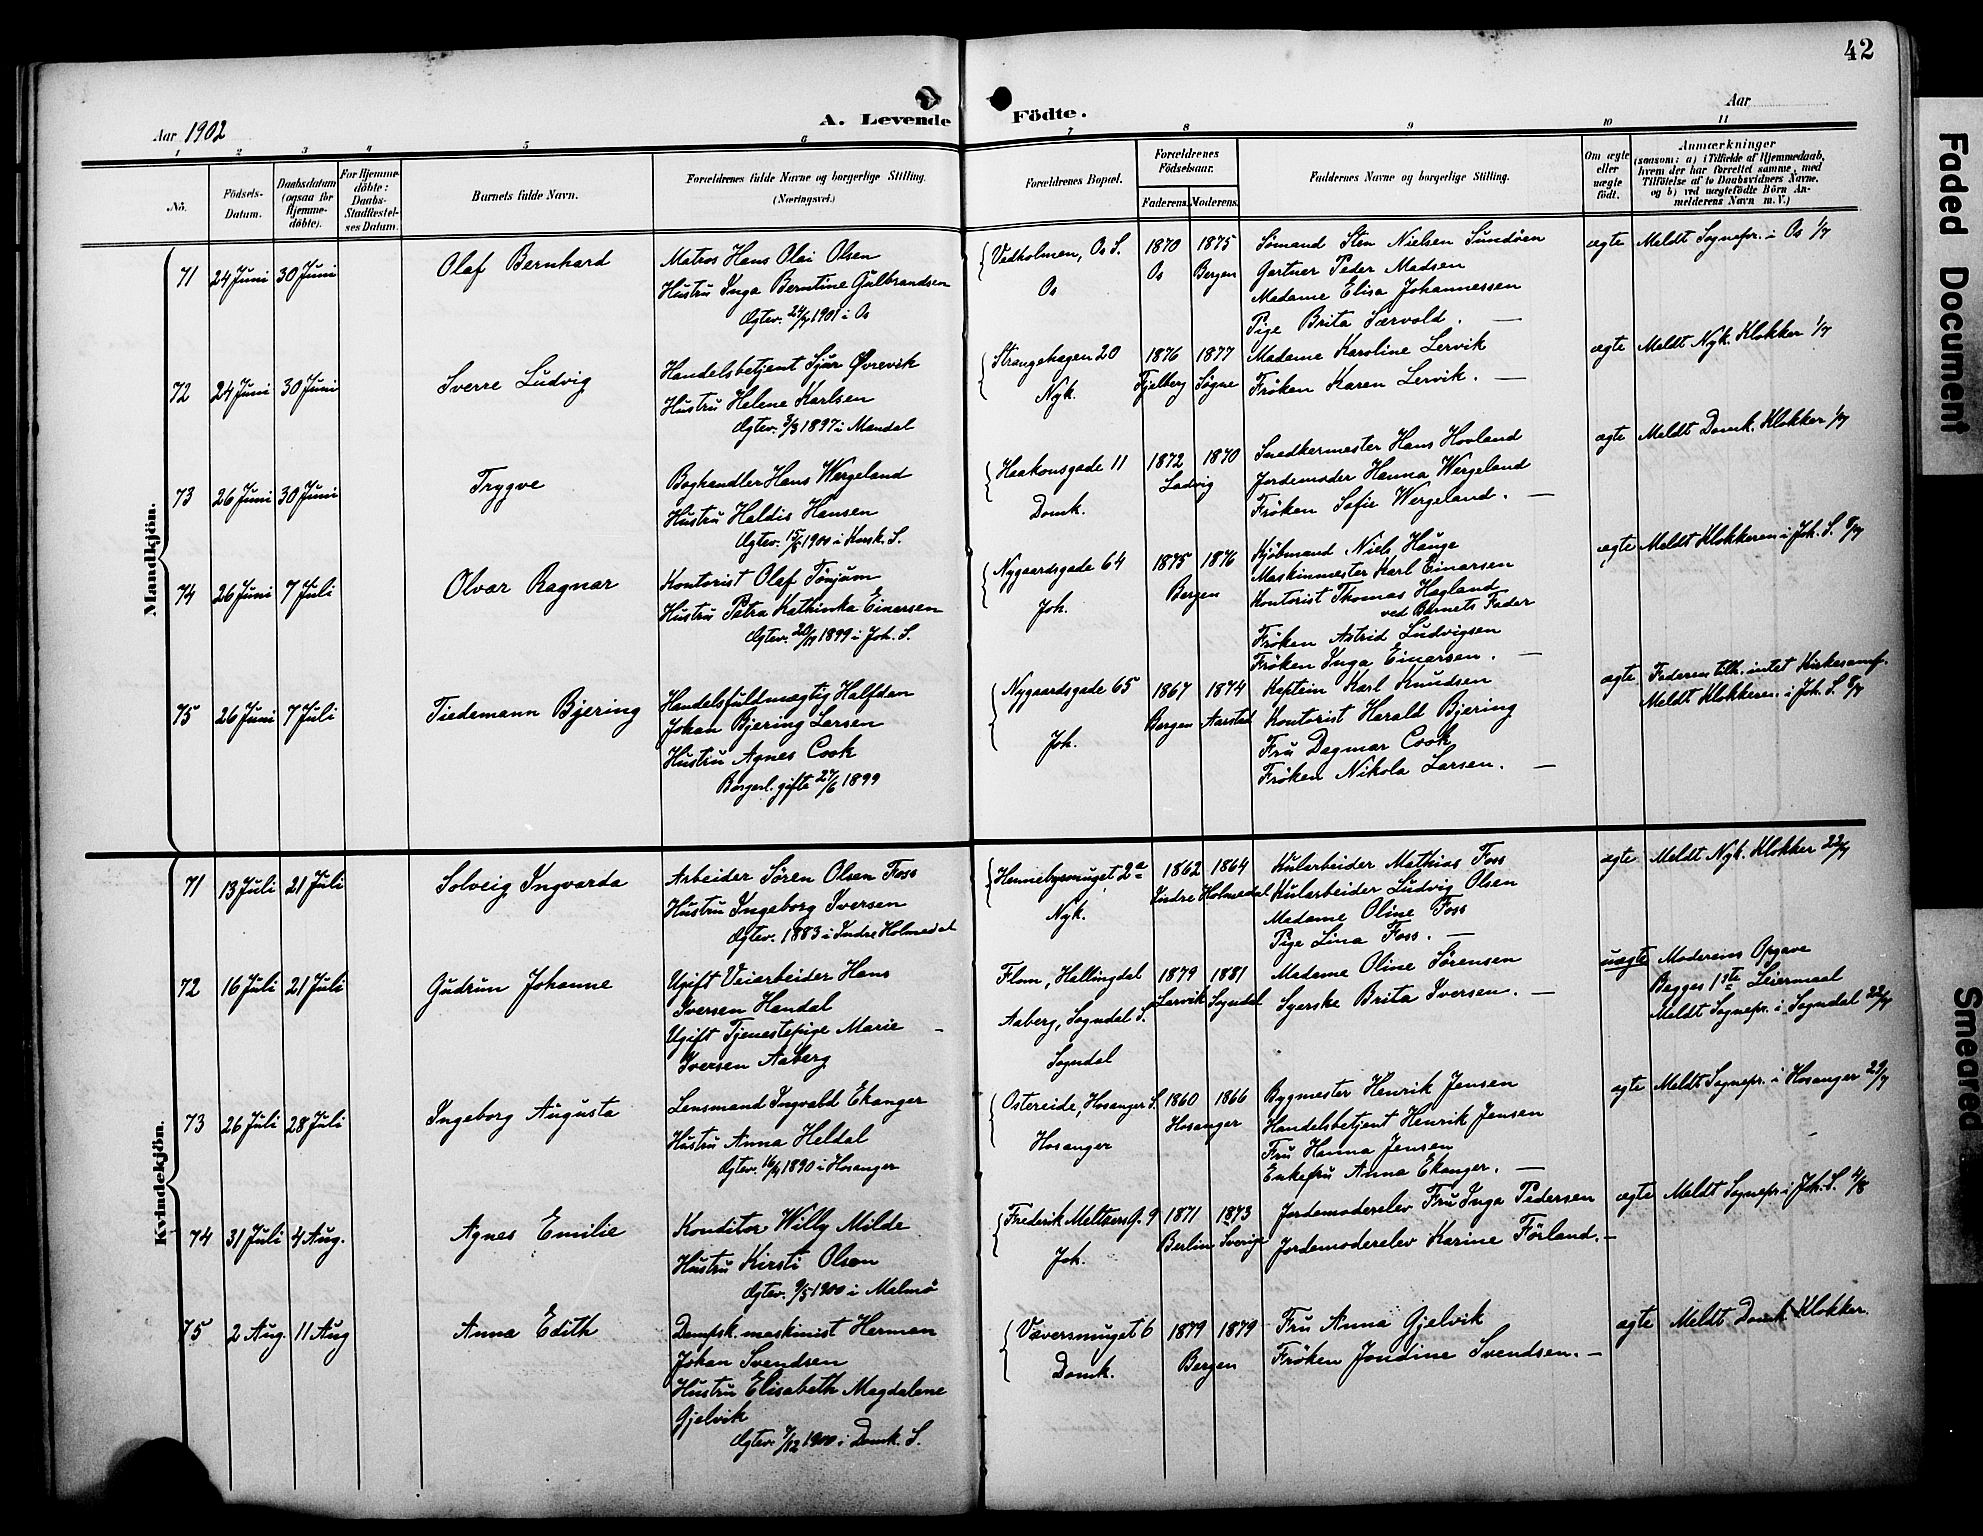 42
Aar 1902
A. Levende Födte.
Aar
1 2 3 4 5 6 7 8 9 10 11
No.
Födsels-
Datum.
Daabsdatum
(ogsaa for
Hjemme-
döbte).
For Hjemme-
döbte:
Daabs-
Stadfæstel-
ses Datum.
Barnets fulde Navn.
Forældrenes fulde Navne og borgerlige Stilling.
(Næringsvei.)
Forældrenes Bopæl.
Forældrenes
Födselsaar.
Faderens. Moderens.
Faddernes Navne og borgerlige Stilling.
Om ægte
eller
uægte
født.
Anmærkninger
(saasom: a) i Tilfælde af Hjemmedaab,
hvem der har forrettet samme, med
Tilföielse af to Daabsvidners Navne.
og b) ved uægtefödte Börn An-
melderens Navn m. V.)
Mandkjön.
71 24 Juni 30 Juni
Olaf Bernhard
Matros Hans Olai Olsen
Hustru Inga Berntine Gulbrandsen
Ægtev. 1901 i Os
Vedholmen, Os S.
Os
1870 1875
Os Bergen
Sömand Sten Nielsen Sundöen
Gartner Peder Madsen
Madame Elisa Johannessen
Pige Brita Særvold. —
ægte
Meldt Sognepr. i Os 1/7
72 24 Juni 30 Juni
Sverre Ludvig
Handelsbetjent Sjur Øvrevik
Hustru Helene Karlsen
Ægtev. 3/3 1897 i Mandal
Strangehagen 20
Nyk.
1876 1877
Fjelberg Søgne
Madame Karoline Lervik
Fröken Karen Lervik. —
ægte
Meldt Nyk. Klokker 1/7
73 26 Juni 30 Juni
Trygve
Boghandler Hans Wergeland
Hustru Haldis Hansen
Ægtev. 1900 i Korsk. S.
Haakonsgade 11
Domk.
1872 1870
Ladvig
Snedkermester Hans Hovland
Jordemoder Hanna Wergeland
Fröken Sofie Wergeland. —
ægte
Meldt Domk. Klokker 1/7
74 26 Juni 7 Juli
Olvar Ragnar
Kontorist Olaf Tönjum
Hustru Petra Kathinka Einersen
Ægtev. 1899 i Joh. S.
Nygaardsgade 64
Joh.
1875 1876
Bergen
Kjöbmand Niels Hauge
Maskinmester Karl Einarsen
Kontorist Thomas Hagland
ved Barnets Fader
Fröken Astrid Ludvigsen
Fröken Inga Einarsen. —
ægte
Meldt Klokkeren i Joh. S. 8/7
75 26 Juni 7 Juli
Tiedemann Bjering
Handelsfuldmægtig Halfdan
Johan Bjering Larsen
Hustru Agnes Cook
Borgerl. gifte 27/6 1899
Nygaardsgade 65
Joh.
1867 1874
Bergen Aarstad
Kaptein Karl Knudsen
Kontorist Harald Bjering
Fru Dagmar Cook
Fröken Nikola Larsen. —
ægte
Faderen tilh. intet Kirkesamf.
Meldt Klokkeren i Joh. S. 8/7
Kvindekjön.
71 13 Juli 21 Juli
Solveig Ingvarda
Arbeider Sören Olsen Foss
Hustru Ingeborg Iversen
Ægtev. 1883 i Indre Holmedal
Hennebysmuget 2a
Nyk.
1862 1864
Indre Holmedal
Kularbeider Mathias Foss
Kularbeider Ludvig Olsen
Madame Oline Foss
Pige Lina Foss. —
ægte
Meldt Nyk. Klokker 22/7
72 16 Juli 21 Juli
Gudrun Johanne
Ugift Veiarbeider Hans
Iversen Handal
Ugift Tjenestepige Marie —
Iversen Aaberg
Flom, Hallingdal
Aaberg, Sogndal S.
Sogndal
1879 1881
Larvik Sogndal
Madame Oline Sörensen
Syerske Brita Iversen. —
uægte
Moderens Opgave
Begges 1ste Leiermaal
Meldt Sognepr. i Sogndal 22/7
73 26 Juli 28 Juli
Ingeborg Augusta
Lensmand Ingvald Ekanger
Hustru Anna Heldal
Ægtev. 1890 i Hosanger
Ostereide, Hosanger S.
Hosanger
1860 1866
Hosanger
Bygmester Henrik Jensen
Handelsbetjent Henrik Jensen
Fru Hanna Jensen
Enkefru Anna Ekanger. —
ægte
Meldt Sognepr. i Hosanger 29/7
74 31 Juli 4 Aug.
Agnes Emilie
Konditor Willy Milde
Hustru Kirsti Olsen
Ægtev. 9/5 1900 i Malmö
Frederik Meltzers G. 9
Joh.
1871 1873
Berlin Sverige
Jordemoderelev Fru Inga Pedersen
Jordemoderelev Karine Förland. —
ægte
Meldt Sognepr. i Joh. S. 4/8
75 2 Aug. 11 Aug
Anna Edith
Dampsk. maskinist Herman
Johan Svendsen
Hustru Elisabeth Magdalene
Gjelvik
Ægtev. 7/12 1900 i Domk. S.
Væversmuget 6
Domk.
1879 1879
Bergen
Fru Anna Gjelvik
Fröken Jondine Svendsen. —
ægte
Meldt Domk Klokker.
Faded Document
Smeared